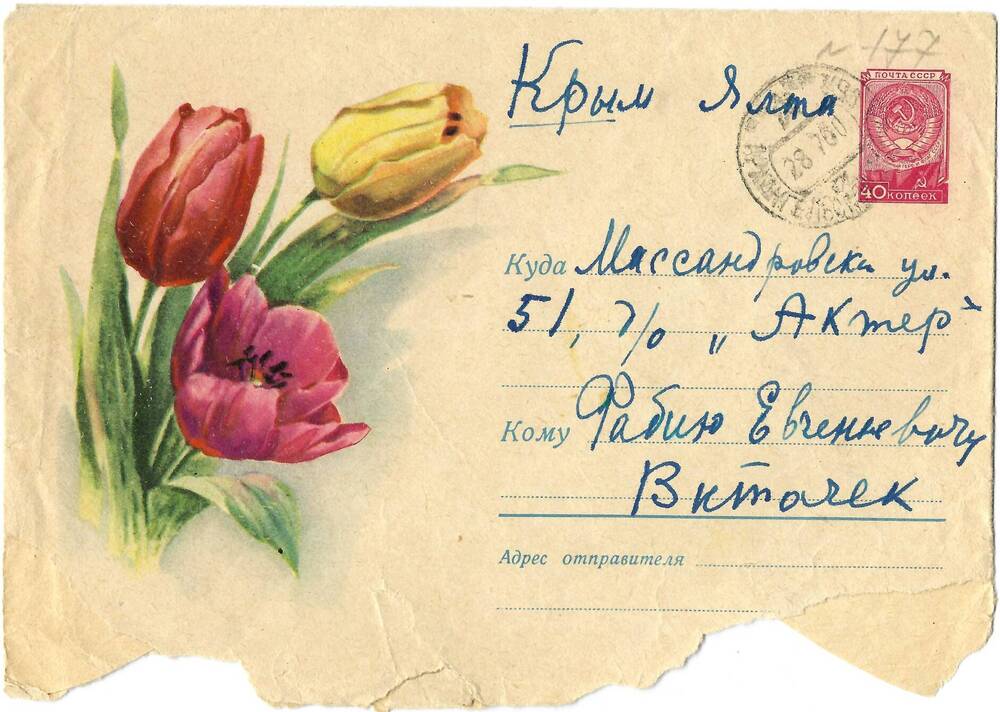 N 177
ПОЧТА СССР
Крым Ялта
28 7 60
40 КОПЕЕК
Куда Массандровская ул.
51, д/о „Актер"
Кому Фабию Евгеньевичу
Витачек
Адрес отправителя